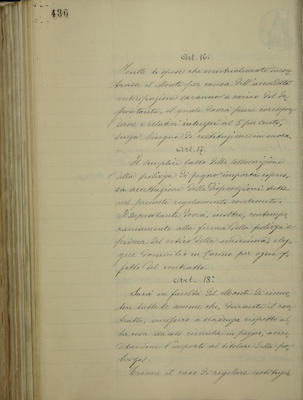 436
Art. 16.
Tutte le spese che eventualmente incon
trasse il Monte per causa dell'accordata
anticipazione saranno a carico del De
positante, il quale dovrà pure corrispon
dere i relativi interessi al 5 per cento,
senza bisogno di costituzione in mora.
Art. 17.
Il semplice fatto della sottoscrizione
della polizza di pegno importa espres
sa accettazione delle disposizioni tutte
nel presente regolamento contenute.
Il Depositante dovrà, inoltre, contempo
raneamente alla firma della polizza e
prima del ritiro della medesima eleg
gere domicilio in Torino per ogni ef
fetto del contratto.
Art. 18.
Sarà in facoltà del Monte di
tutte le somme che, durante il con
tratto, venissero a scadenza rispetto al
in pegno, accre
l'importo al titolare della po
lizza.
Tranne il caso di regolare